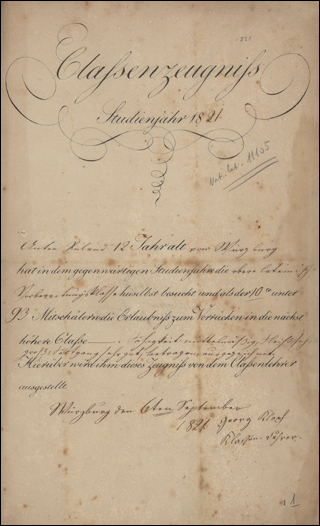 Classenzeugniss
Studienjahr 1821.
11605
Anton Ruland 12 Jahr alt von Würzburg
hat in dem gegenwärtigen Studienjahr die obere lateinische
Vorbereitungsklasse hieselbst besucht und als der 10te unter
93 Mitschülern die Erlaubniß zum Vorrücken in die nächst
höhere Classe
Hierüber wird ihm dieses Zeugniß von dem Classenlehrer
ausgestellt.
Würzburg den 6ten September
1821. Georg
Klassen-Lehrer.
1